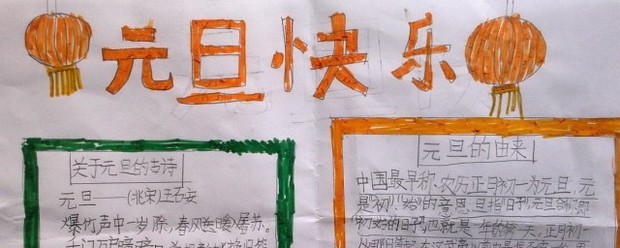 元旦快乐
关于元旦的古诗
元旦——(北宋)王石安
爆竹声中一岁除,春风送暖入屠苏。
千门万
元旦的由来
中国最早称农历正月初一为元旦,元
是"初""始"的意思,旦指日子,元旦合称即
初始的日子,也就是一年的第一天,正月初一